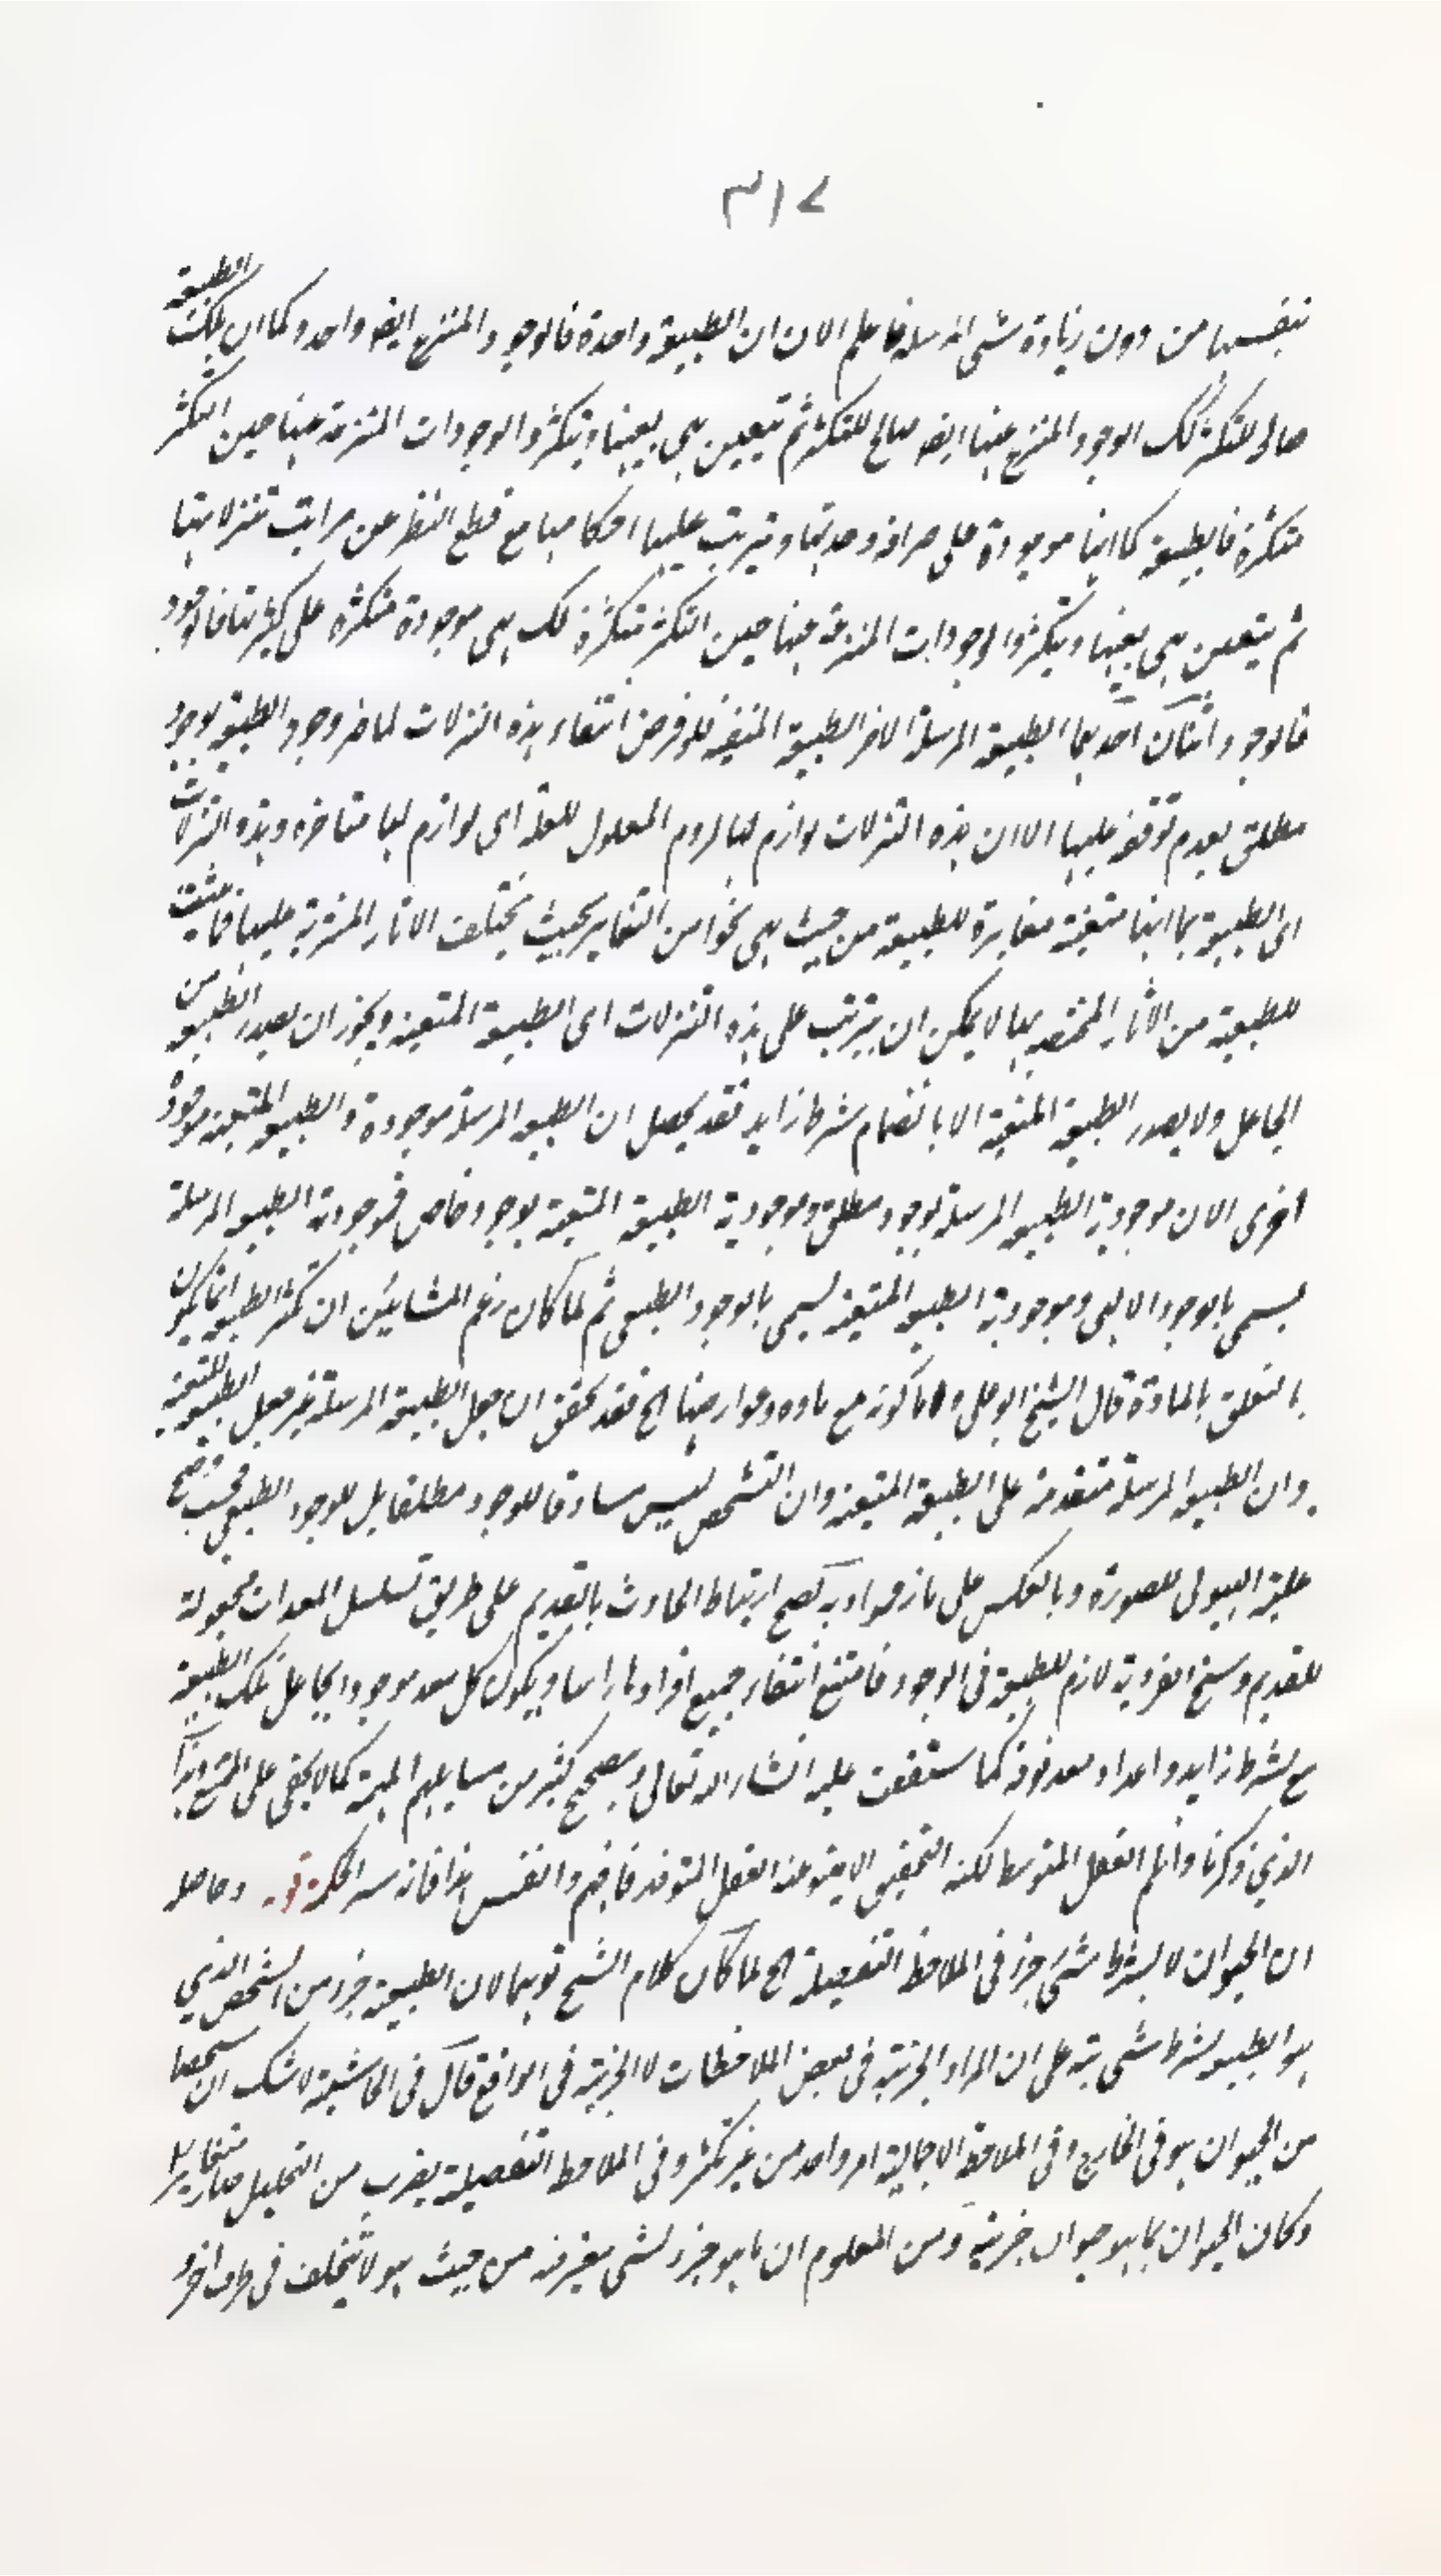 ٣١٧
بنفسها من دون زيادة شئ المرسلة فاعلم الان ان الطبيعة واحدة فالوجود المنتزع ايضا واحد وكما ان تلك الطبيعة
صالح للتكثر كك الوجود المنتزع عنها ايضا صالح للتكثر ثم تتعين هى بعينها ويتكثر والوجودات المنتزعة عنها حين التكثر
متكثرة فالطبيعة كما انها موجودة على صرافة وحدتها ويترتب عليها احكامها مع قطع النظر عن مراتب تنزلاتها
ثم يتعين هى بعينها ويتكثر والوجودات المنتزعة عنها حين التكثر متكثرة كك هى موجودة متكثرة على كثرتها فالوجود
فالوجود اثنان احدهما الطبيعة المرسلة الاخر الطبيعة المتعينة فلو فرض انتفاء هذه التنزلات لما ضر وجود الطبيعة بوجود
مطلق بعدم توقفه عليها الا ان هذه التنزلات لوازم لها لزوم المعلول للعلة اى لوازم لها متاخرة وهذه التنزلات
اى الطبيعة بما انها متعينة مغايرة للطبيعة من حيث هى نحوا من التغاير بحيث يختلف الاثار المترتبة عليها فاثبتت
للطبيعة من الاثار المختصة بها لا يمكن ان يترتب على هذه التنزلات اى الطبيعة المتعينة ويجوز ان يصدر الطبيعة من
الجاعل ولا يصدر الطبيعة المتعينة الا بانضمام شرط زايد فقد يحصل ان الطبيعة المرسلة موجودة والطبيعة المتعينة موجودة
اخرى الا ان موجودية الطبيعة المرسلة بوجود مطلق وموجودية الطبيعة المتعينة بوجود خاص فموجودية الطبيعة المرسلة
يسمى بالوجود الالهى وموجودية الطبيعة المتعينة يسمى بالوجود الطبيعى ثم لما كان زعم المشايين ان تكثر الطبيعة انما يكون
بالتعلق بالمادة قال الشيخ ابو على واما كونه مع مادة وعوارضها الخ فقد تحقق ان جعل الطبيعة المرسلة غير جعل الطبيعة المتعينة
وان الطبيعة المرسلة متقدمة على الطبيعة المتعينة وان التشخص ليس مساوقا للوجود مطلقا بل للوجود الطبيعى فحسب فتصح
علية الهيولى للصورة وبالعكس على ما زعموا وبه تصح ارتباط الحادث بالقديم على طريق تسلسل المعدات مجعولة
للقديم وسنخ الفردية لازم للطبيعة فى الوجود فامتنع انتفاء جميع افرادها راسا ويكون كل معد موجود الجاعل تلك الطبيعة
مع شرط زايد واعداد معد فوقه كما ستقف عليه انشاء الله تعالى ويصحح كثير من مسايلهم المهمة كما لا يخفى على المتتبع وهذا
الذى ذكرنا وان لم العقل المتوسط لكنه التحقيق لا يعتو عنه العقل المتوقد فافهم والنفس هذا فانه سر الحكمة قوله وحاصله
ان الحيوان لا بشرط شئ جزء فى الملاحظة التفصيلة الخ لما كان كلام الشيخ توهما لان الطبيعة جزء من الشخص الذى
هو الطبيعة بشرط شئ نبه على ان المراد الجزئية فى بعض الملاحظات لا الجزئية فى الواقع قال فى الحاشية لا شك ان شخصا
من الحيوان هو فى الخارج وفى الملاحظة الاجمالية امر واحد من غير تكثر وفى الملاحظة التفصيلة بضرب من التحليل صار متغايرا
وكان الحيوان بما هو حيوان جزءه ومن المعلوم ان ما هو جزء لشئ بغيره من حيث هو لا يتخلف فى ظرف اخر